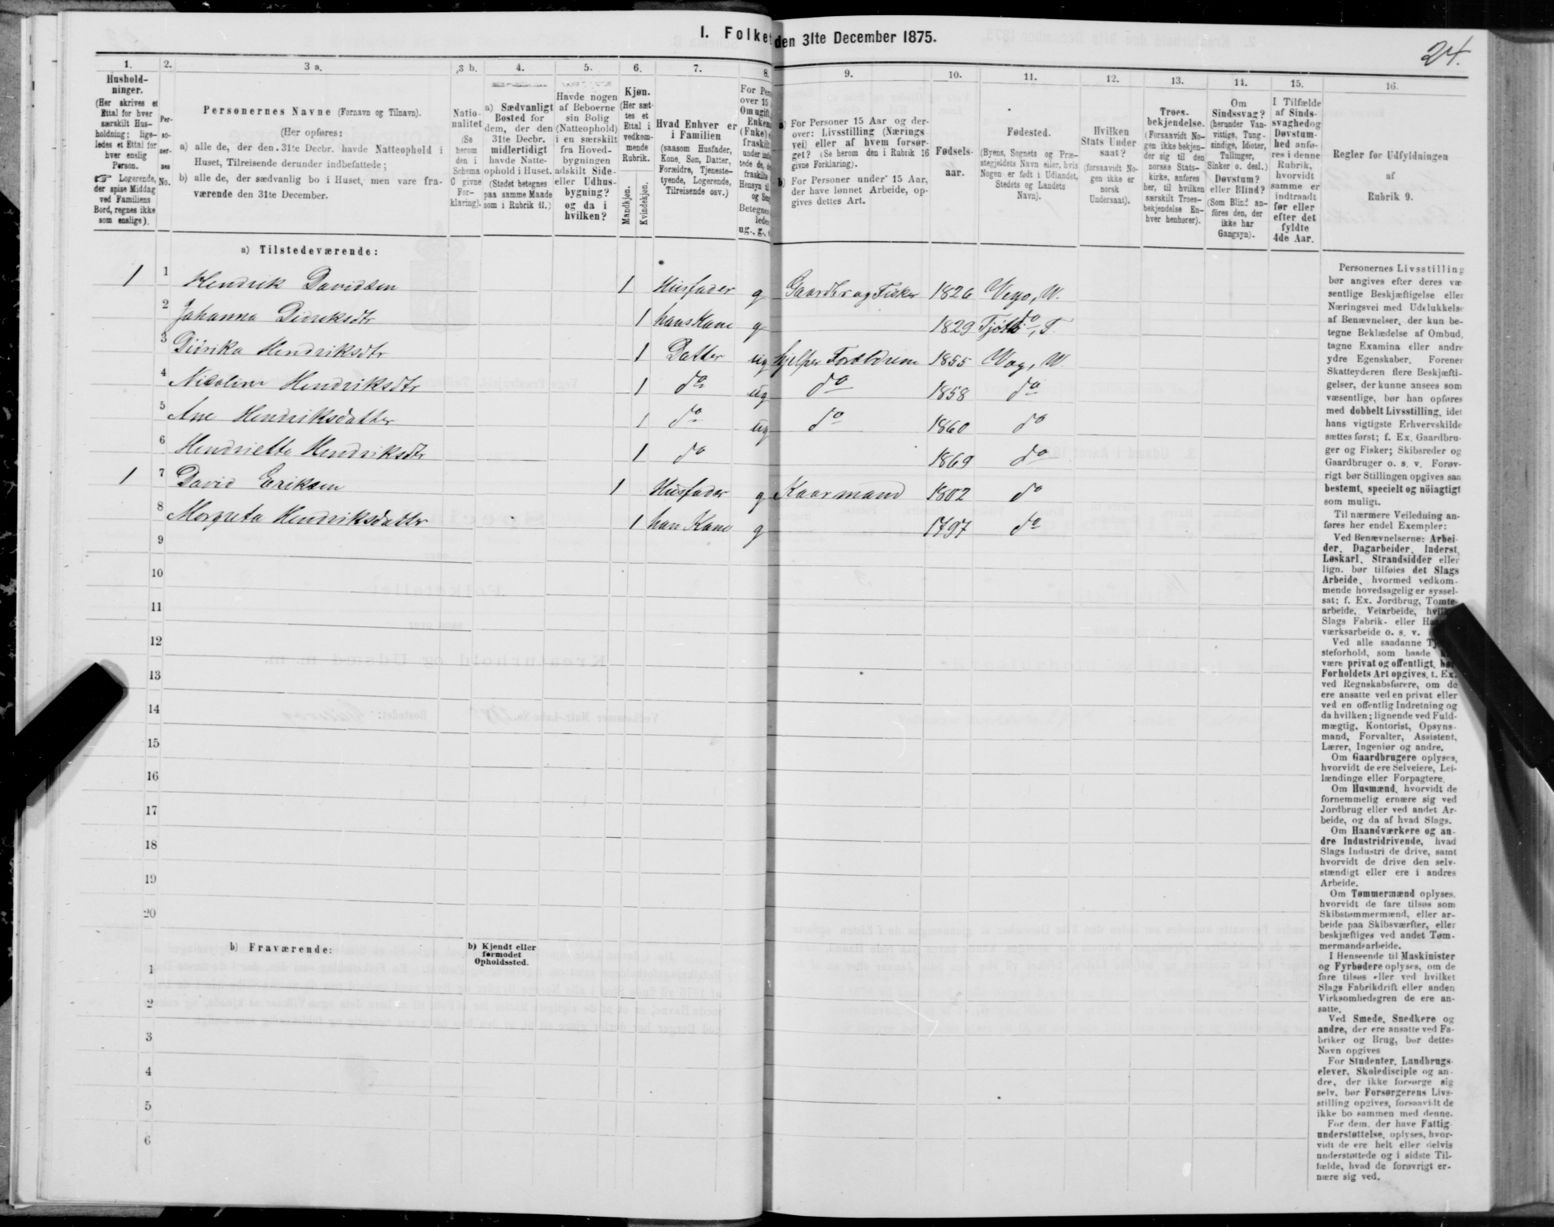 I. Folket
den 31te December 1875.
24.
1.
Hushold-
ninger.
(Her skrives et
Ettal for hver
særskilt Hus-
holdning; lige-
ledes et Ettal for
hver enslig
Person.
Logerende,
der spise Middag
ved Familiens
Bord, regnes ikke
som enslige).
2.
Per-
so-
ner-
nes
No.
3 a.
Personernes Navne (Fornavn og Tilnavn).
(Her opføres:
a) alle de, der den 31te Decbr. havde Natteophold i
Huset, Tilreisende derunder indbefattede;
b) alle de, der sædvanlig bo i Huset, men vare fra-
værende den 31te December.
3 b.
Natio-
nalitet
(Se
herom
den i
Schema
0 givne
For-
klaring).
4.
a) Sædvanligt
Bosted for
dem, der den
31te Decbr.
midlertidigt
havde Natte-
ophold i Huset.
(Stedet betegnes
paa samme Maade
som i Rubrik 11.)
5.
Havde nogen
af Beboerne
sin Bolig
(Natteophold)
i en særskilt
fra Hoved-
bygningen
adskilt Side-
eller Udhus-
bygning?
og da i
hvilken?
6.
Kjøn.
(Her sæt-
tes et
Ettal i
vedkom-
mende
Rubrik.
Mandkjøn.
Kvindekjøn.
7.
Hvad Enhver er
i Familien
(saasom Husfader,
Kone, Søn, Datter,
Forældre, Tjeneste-
tyende, Logerende,
Tilreisende osv.)
8.
For Pers
over 15
Om ugift
Enkem
(Enke)
fraskilt
ug., g.,
9.
a) For Personer 15 Aar og der-
over: Livsstilling (Nærings-
vei) eller af hvem forsør-
get? (Se herom den i Rubrik 16
givne Forklaring).
b) For Personer under 15 Aar,
der have lønnet Arbeide, op-
gives dettes Art.
10.
Fødsels-
aar.
11.
Fødested.
(Byens, Sognets og Præ-
stegjeldets Navn eller, hvis
Nogen er født i Udlandet,
Stedets og Landets
Navn).
12.
Hvilken
Stats Under
saat?
(forsaavidt No-
gen ikke er
norsk
Undersaat).
13.
Troes-
bekjendelse.
(Forsaavidt No-
gen ikke bekjen-
der sig til den
norske Stats-
kirke, anføres
her, til hvilken
særskilt Troes-
bekjendelse En-
hver henhører).
14.
Om
Sindssvag?
(herunder Van-
vittige, Tung-
sindige, Idioter,
Tullinger,
Sinker o. desl.)
Døvstum?
eller Blind?
(Som Blind an-
føres den, der
ikke har
Gangsyn).
15.
I Tilfælde
af Sinds-
svaghed og
Døvstum-
hed anfø-
res i denne
Rubrik,
hvorvidt
samme er
indtraadt
før eller
efter det
fyldte
4de Aar.
16.
Regler for Udfyldningen
af
Rubrik 9.
a) Tilstedeværende:
1 1 Hendrik Davidsen 1 Husfader g Gaardbr og Fisker 1826 Vegø, W.
2 Johanna Dieriksdtr 1 hans Kane g 1829 Tjöttö, T
3 Diérika Hendriksdtr 1 Datter ug hjelper Foreldrene 1855 Veg, W
4 Nicoline Hendriksdtr 1 do ug do 1858 do
5 Ane Hendriksdatter 1 do ug do 1860 do
6 Hendrietta Hendriksdtr 1 do 1869 do
1 7 David Eriksen 1 Husfader g Kaarmand 1802 do
8 Morgreta Hendriksdatter 1 han Kane g 1797 do
9
10
11
12
13
14
15
16
17
18
19
20
b) Fraværende:
b) Kjendt eller
formodet
Opholdssted.
1
2
3
4
5
6
Personernes Livsstilling
bør angives efter deres væ-
sentlige Beskjæftigelse eller
Næringsvei med Udelukkelse
af Benævnelser, der kun be-
tegne Beklædelse af Ombud,
tagne Examina eller andre
ydre Egenskaber. Forener
Skatteyderen flere Beskjæfti-
gelser, der kunne ansees som
væsentlige, bør han opføres
med dobbelt Livsstilling, idet
hans vigtigste Erhvervskilde
sættes først; f. Ex. Gaardbru-
ger og Fisker; Skibsreder og
Gaardbruger o. s. v. Forøv-
rigt bør Stillingen opgives saa
bestemt, specielt og nøiagtigt
som muligt.
Til nærmere Veiledning an-
føres her endel Exempler:
Ved Benævnelserne: Arbei-
der, Dagarbeider, Inderst,
Løskarl, Strandsidder eller
lign. bør tilføies det Slags
Arbeide, hvormed vedkom-
mende hovedsagelig er syssel-
sat; f. Ex. Jordbrug, Tomte-
arbeide, Veiarbeide, hvilket
Slags Fabrik- eller Haand-
værksarbeide o. s. v.
Ved alle saadanne Tje-
steforhold, som baade
være privat og offentligt, bør
Forholdets Art opgives, t. Ex.
ved Regnskabsførere, om de
ere ansatte ved en privat eller
ved en offentlig Indretning og
da hvilken; lignende ved Fuld-
mægtig, Kontorist, Opsyns-
mand, Forvalter, Assistent,
Lærer, Ingeniør og andre.
Om Gaardbrugere oplyses,
hvorvidt de ere Selveiere, Lei-
lændinge eller Forpagtere.
Om Husmænd, hvorvidt de
fornemmelig ernære sig ved
Jordbrug eller ved andet Ar-
beide, og da af hvad Slags.
Om Haandværkere og an-
dre Industridrivende, hvad
Slags Industri de drive, samt
hvorvidt de drive den selv-
stændigt eller ere i andres
Arbeide.
Om Tømmermænd oplyses,
hvorvidt de fare tilsøs som
Skibstømmermænd, eller ar-
beide paa Skibsværfter, eller
beskjæftiges ved andet Tøm-
mermandsarbeide.
I Henseende til Maskinister
og Fyrbødere oplyses, om de
fare tilsøs eller ved hvilket
Slags Fabrikdrift eller anden
Virksomhedsgren de ere an-
satte.
Ved Smede, Snedkere og
andre, der ere ansatte ved Fa-
briker og Brug, bør dettes
Navn opgives
For Studenter, Landbrugs-
elever, Skoledisciple og an-
dre, der ikke forsørge sig
selv, bør Forsørgerens Livs-
stilling opgives, forsaavidt de
ikke bo sammen med denne.
For dem, der have Fattig-
understøttelse, oplyses, hvor-
vidt de ere helt eller delvis
understøttede og i sidste Til-
fælde, hvad de forøvrigt er-
nære sig ved.